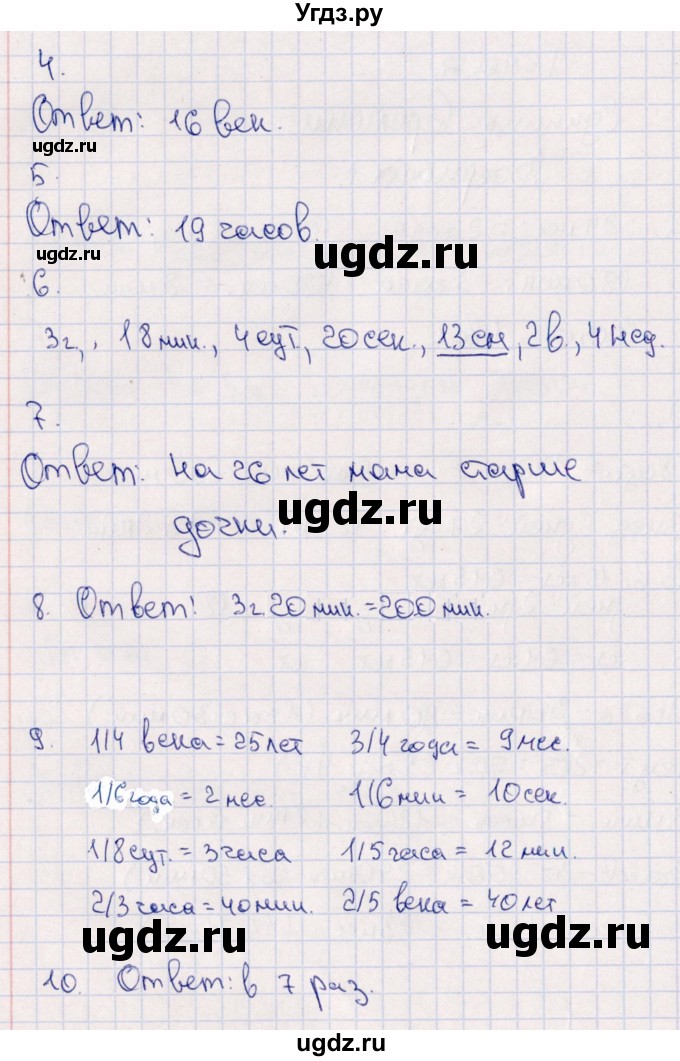 Угдз.ру
4.
Ответ: 16 век.
ugdz.ru
5.
Ответ: 19 часов.
ugdz.ru
ugdz.ru
6.
3г., 18 мин., 4 сут., 20 сек., 13 см, 2 в., 4 нед.
7.
Ответ: На 26 лет мама старше
дочки.
ugdz.ru
8. Ответ: 3г. 20 мин. = 200 мин.
9. 1/4 века = 25 лет 3/4 года = 9 мес.
1/6 года = 2 мес. 1/6 мин = 10 сек.
1/8 сут. = 3 часа 1/5 часа = 12 мин.
2/3 часа = 40 мин. 2/5 века = 40 лет
ugdz.ru ugdz.ru
10. Ответ: в 7 раз.
ugdz.ru